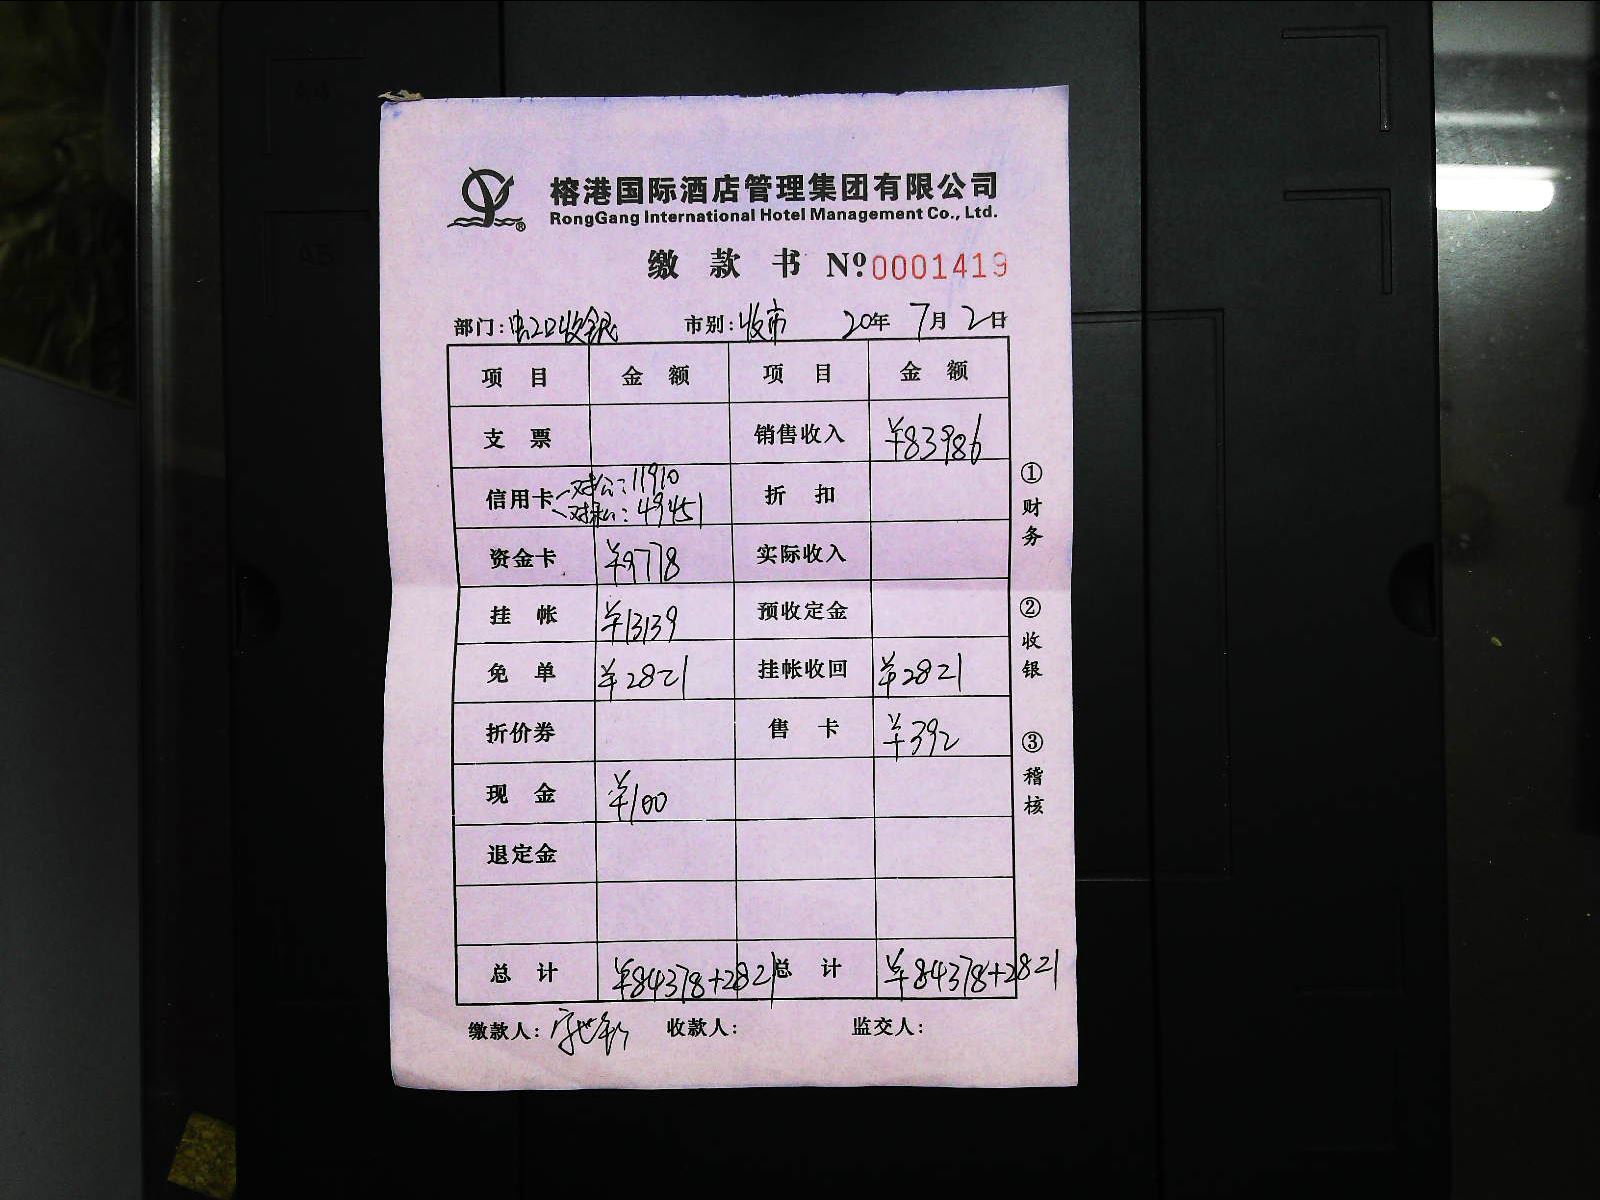 榕港国际酒店管理集团有限公司
RongGang International Hotel Management Co., Ltd.
缴款书 Nº 0001419
部门: 市别:收市 20年 7月 2日
项目 金额 项目 金额
支票 销售收入 ¥83986
信用卡 对公:11910 折扣
对私:49451
资金卡 ¥9778 实际收入
挂帐 ¥13139 预收定金
免单 ¥2821 挂帐收回 ¥2821
折价券 售卡 ¥392
现金 ¥100
退定金
总计 ¥84378+2821 总计 ¥84378+2821
缴款人: 收款人: 监交人:
①财务
②收银
③稽核
A5